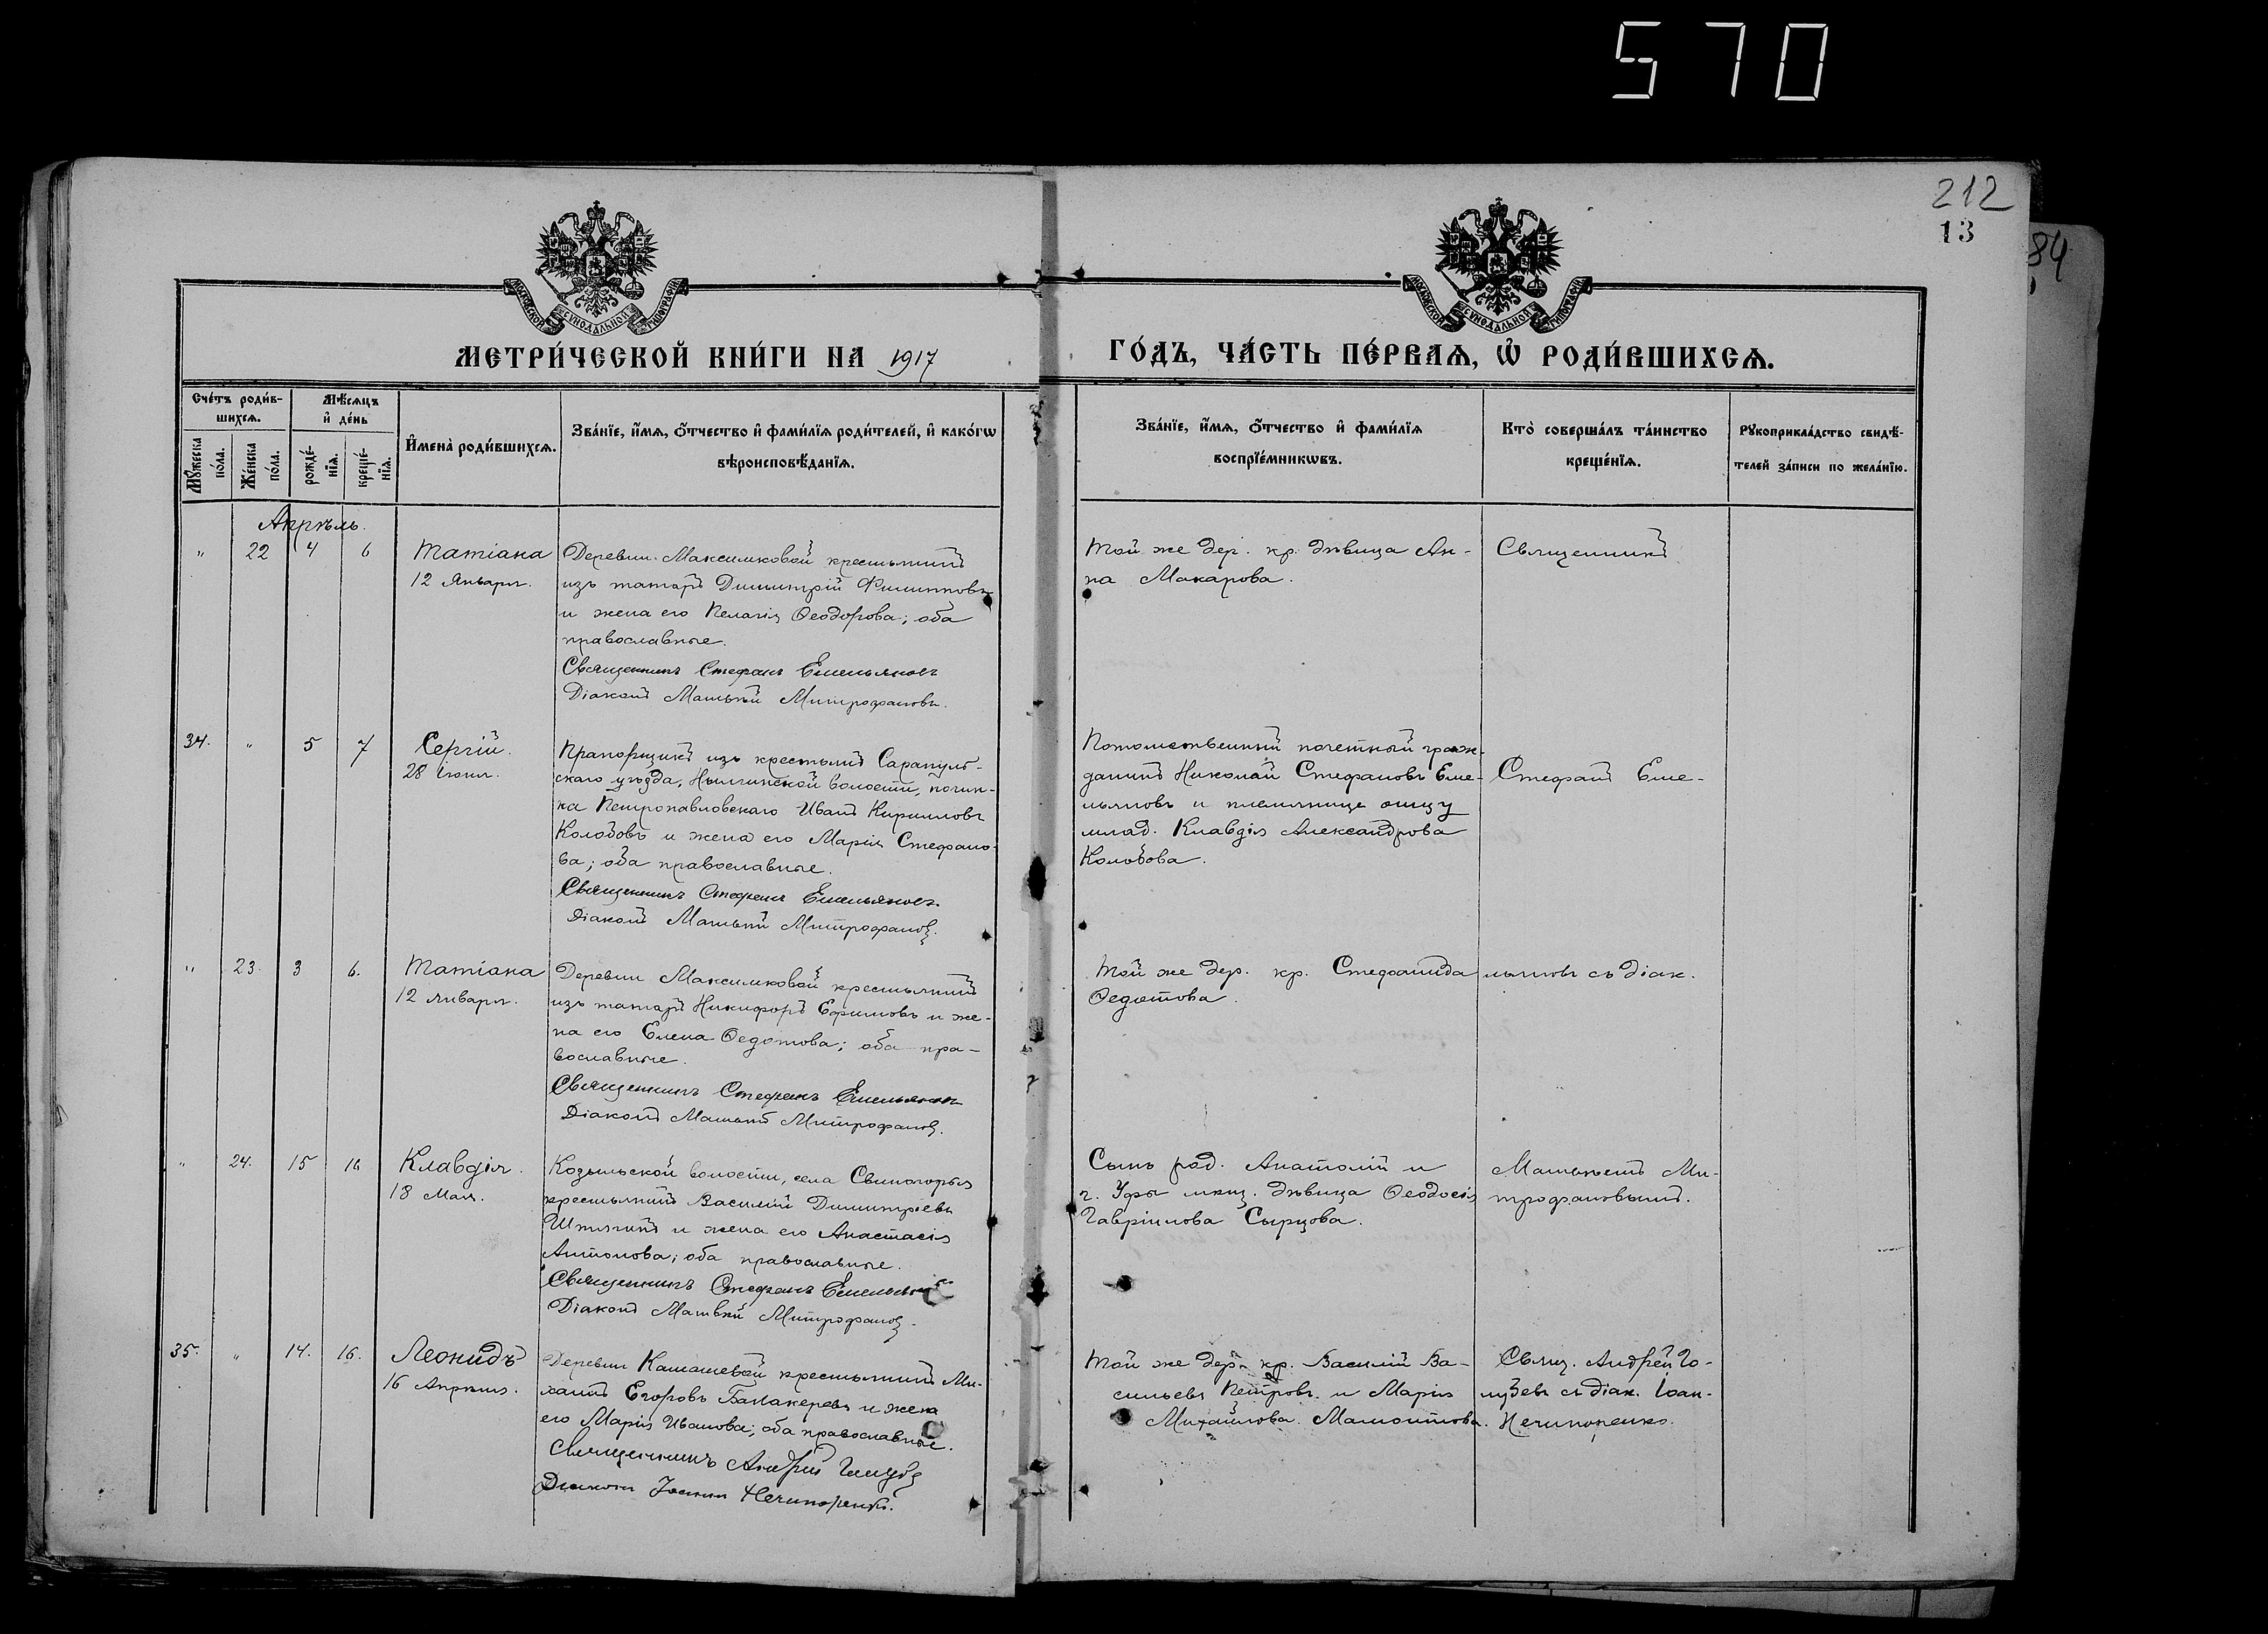 570
212
13
84
МОСКОВСКОЙ СУНОДАЛЬНОЙ ТИПОГРАФІИ
МОСКОВСКОЙ СУНОДАЛЬНОЙ ТИПОГРАФІИ
МЕТРИ́ЧЕСКОЙ КНИ́ГИ НА 1917
ГО́ДЪ, ЧА́СТЬ ПЕ́РВАѦ, Ѽ РОДИ́ВШИХСѦ.
Сче́тъ роди́в-
шихсѧ.
Мѣ́сѧцъ
и҆ де́нь
Мꙋ́жеска
по́ла.
Же́нска
по́ла.
рожде́-
нїѧ.
креще́-
нїѧ.
И҆мена̀ роди́вшихсѧ.
Зва́нїе, и҆́мѧ, ѻ҆́тчество и҆ фами́лїѧ роди́телей, и҆ како́гѡ
вѣроисповѣ́данїѧ.
Зва́нїе, и҆́мѧ, ѻ҆́тчество и҆ фами́лїѧ
воспрїе́мникѡвъ.
Кто̀ соверша́лъ та́инство
креще́нїѧ.
Рꙋкоприкла́дство свидѣ́-
телей за́писи по жела́нїю.
Апрѣль.
" 22 4 6
Татіана
12 Января.
Деревни Максимковой крестьянинъ
изъ татаръ Димитрій Филипповъ
и жена его Пелагія Ѳеодорова; оба
православные.
Священникъ Стефанъ Емельяновъ
Діаконъ Матвѣй Митрофановъ.
Той же дер. кр. дѣвица Ан-
на Макарова.
Священникъ
34. " 5 7
Сергій.
28 Іюня.
Прапорщикъ изъ крестьянъ Сарапуль-
скаго уѣзда, Нылгинской волости, почин-
ка Петропавловскаго Иванъ Кирилловъ
Колобовъ и жена его Марія Стефано-
ва; оба православные.
Священникъ Стефанъ Емельяновъ.
Діаконъ Матвѣй Митрофановъ.
Потомственный почетный граж-
данинъ Николай Стефановъ Еме-
льяновъ и племянница отцу
млад. Клавдія Александрова
Колобова.
Стефанъ Еме-
" 23. 3 6.
Татіана
12 Января.
Деревни Максимковой крестьянинъ
изъ татаръ Никифоръ Ефимовъ и же-
на его Елена Ѳедотова; оба пра-
вославные.
Священникъ Стефанъ Емельяновъ
Діаконъ Матвѣй Митрофановъ.
Той же дер. кр. Стефанида
Ѳедотова.
льяновъ съ діак.
" 24. 15 16
Клавдія.
18 Мая.
Козыльской волости, села Свиногорья
крестьянинъ Василій Димитріевъ
Штягинъ и жена его Анастасія
Антонова; оба православные.
Священникъ Стефанъ Емельяновъ
Діаконъ Матвѣй Митрофановъ.
Сынъ род. Анатолій и
г. Уфы мѣщ. дѣвица Ѳеодосія
Гавріилова Сырцова.
Матвѣемъ Ми-
трофановымъ.
35. " 14. 16.
Леонидъ
16 Апрѣля.
Деревни Камашевой крестьянинъ Ми-
хаилъ Егоровъ Балакеревъ и жена
его Марія Иванова; оба православные.
Священникъ Андрей Голубевъ
Діаконъ Іоаннъ Нечипоренко.
Той же дер. кр. Василій Ва-
сильевъ Петровъ и Марія
Михайлова Мамонтова.
Свящ. Андрей Го-
лубевъ съ діак. Іоан.
Нечипоренко.